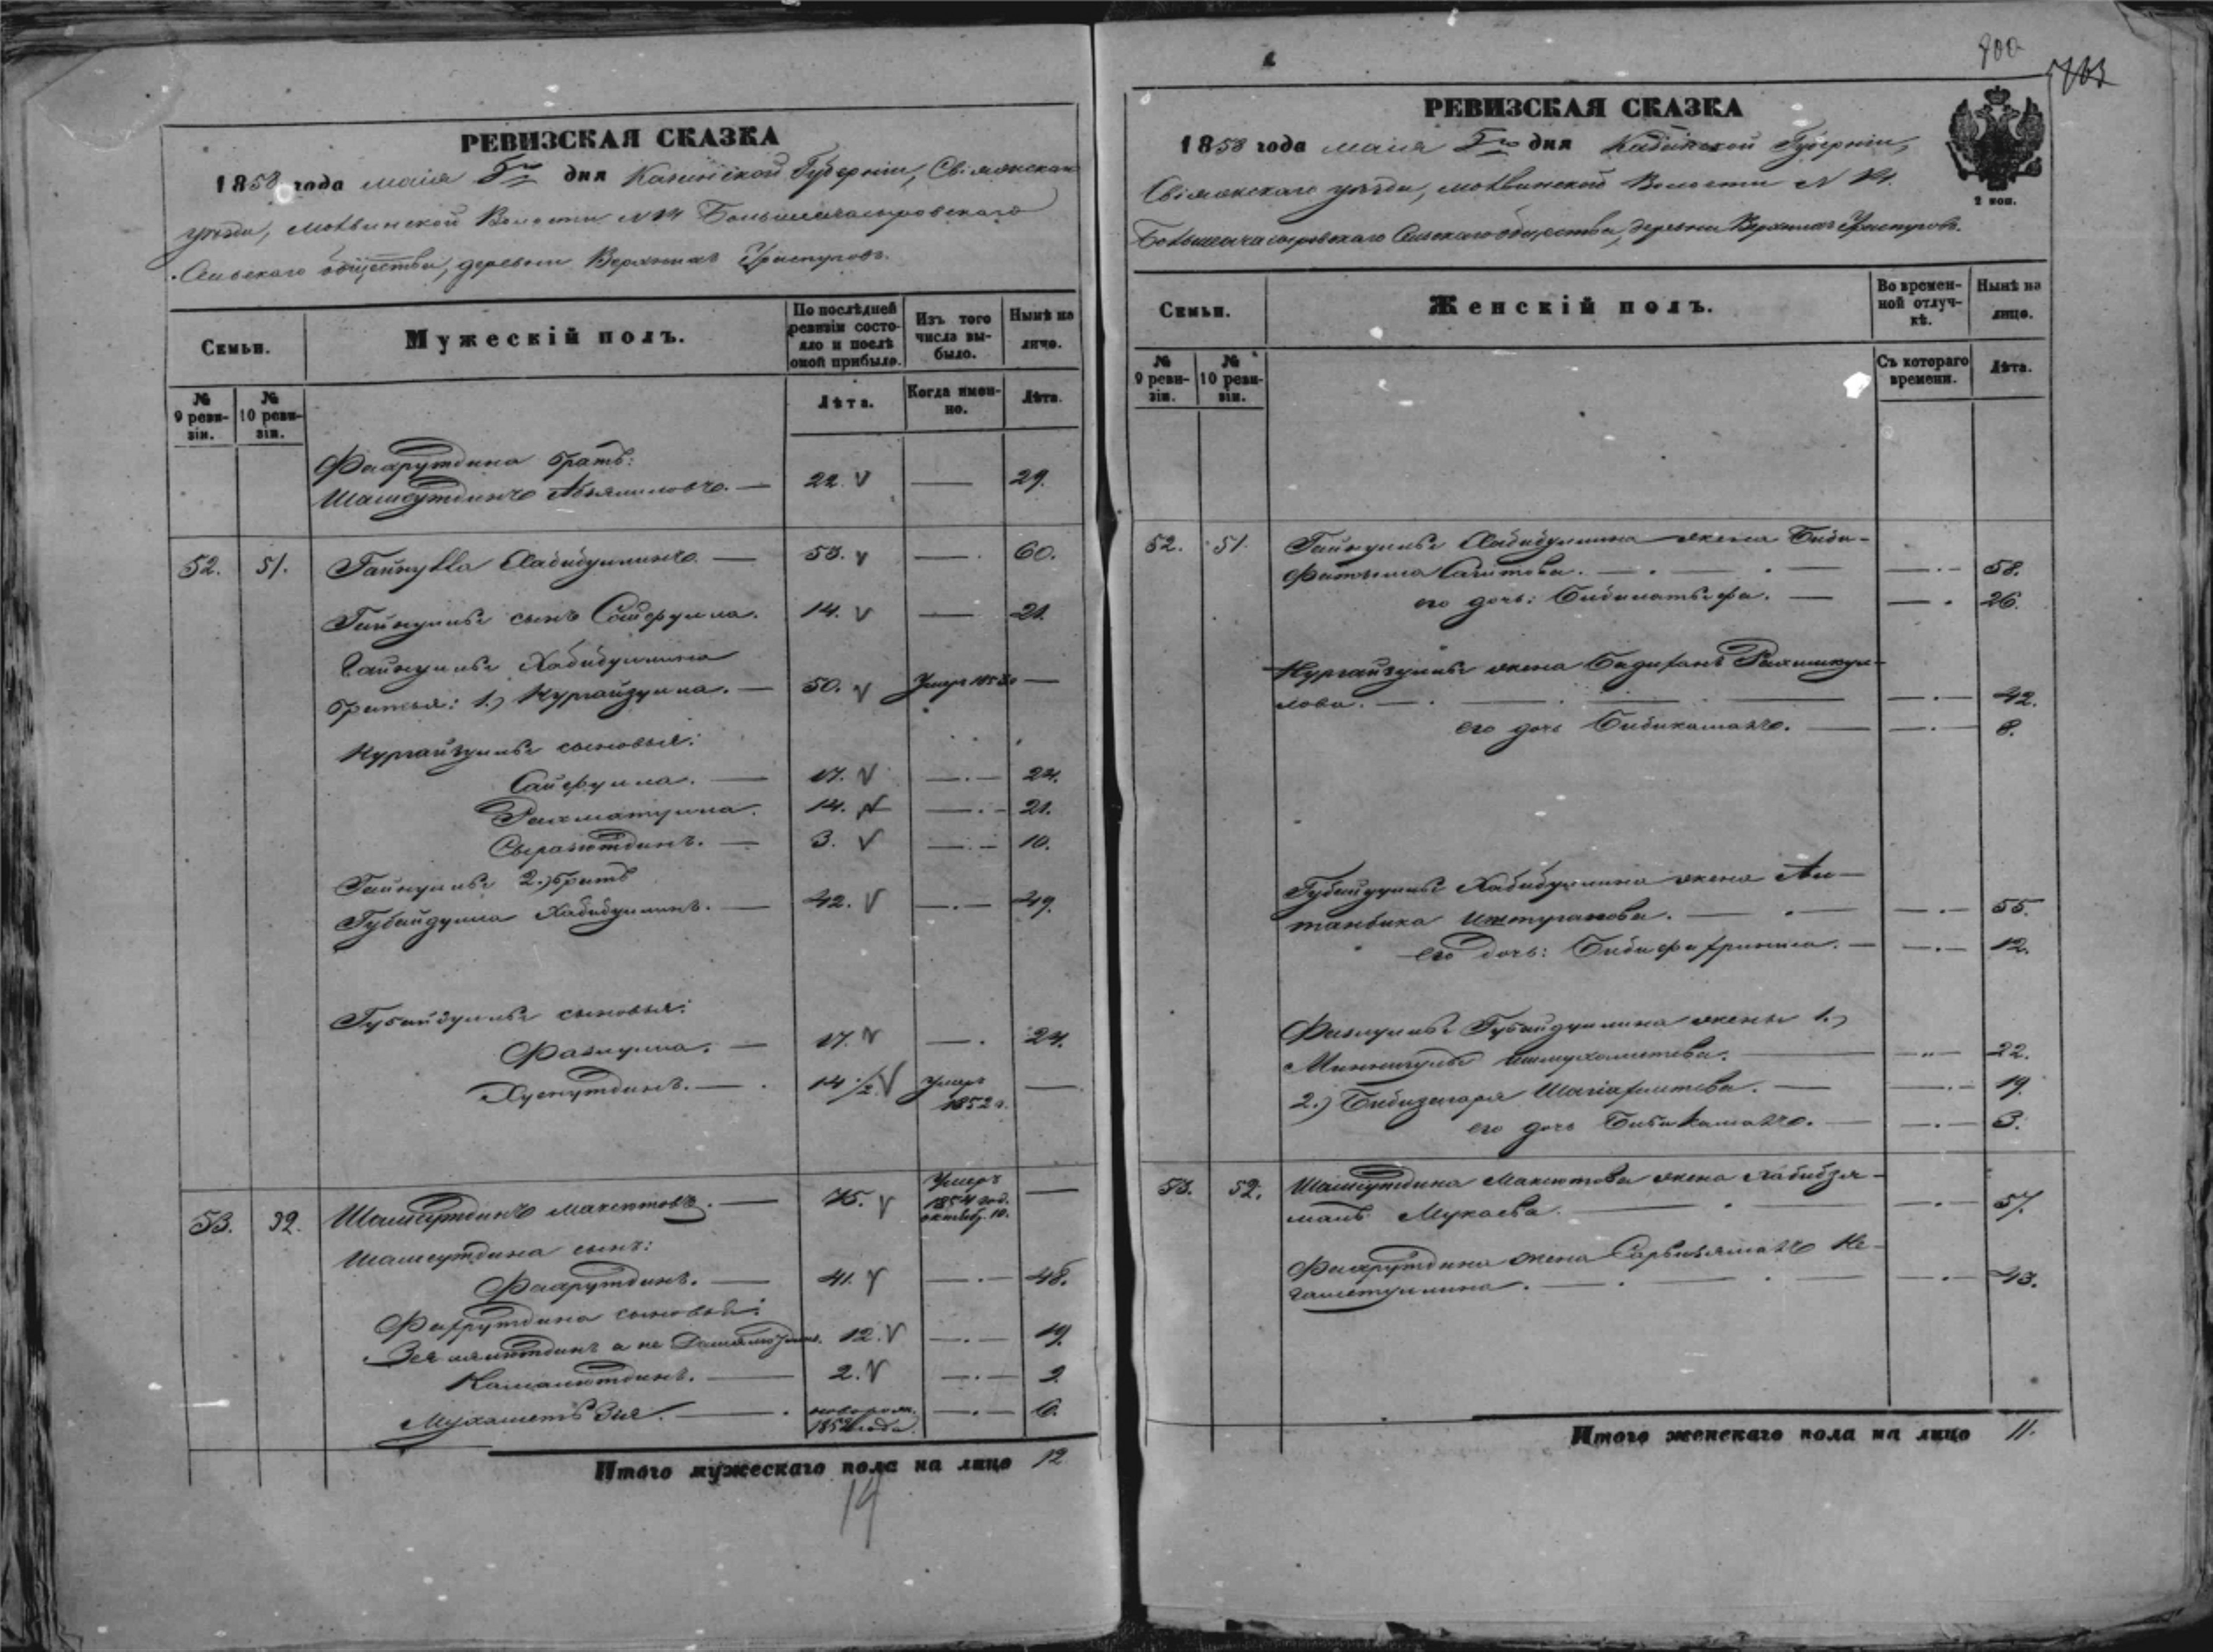 900
РЕВИЗСКАЯ СКАЗКА
1858 года маія 5го дня Казанской Губерніи, Свіяжскаго
уѣзда, Волости № 14
Сельскаго общества, деревни Верхнихъ
Семьи.
Мужескій полъ.
По послѣдней ревизіи состояло и послѣ оной прибыло.
Изъ того числа выбыло.
Нынѣ на лицо.
№ 9 ревизіи.
№ 10 ревизіи.
Лѣта.
Когда именно.
Лѣта.
Фахрутдина братъ:
Шамсутдинъ — 22. — 29.
52. 51. Гайнулла Хабибуллинъ. — 53. — 60.
Гайнуллы сынъ 14. — 21.
Гайнуллы Хабибуллина
братья: 1.) Нургайзулла. — 50. Умеръ —
Нургайзуллы сыновья:
Сайфулла. — 17. — 24.
Рахматулла. 14. — 21.
Сыразютдинъ. — 3. — 10.
Гайнуллы 2.) братъ
Губайдулла Хабибуллинъ. — 42. — 49.
Губайдуллы сыновья:
Фазлулла. — 17. — 24.
Хуснутдинъ. — 14 1/2. Умеръ 1852 г. —
53. 52. Шамсутдинъ Максютовъ. — 75. Умеръ 1854 год. октябр. 10. —
Шамсутдина сынъ:
Фахрутдинъ. — 41. — 48.
Фахрутдина сыновья:
а не 12. — 19.
Камалютдинъ. — 2. — 9.
Мухаметъ Зыя. — новорож. — 6.
Итого мужескаго пола на лицо 12
14
РЕВИЗСКАЯ СКАЗКА
1858 года маія 5го дня Казанской Губерніи,
Свіяжскаго уѣзда, Волости № 14.
Сельскаго общества, деревни Верхнихъ
2 коп.
Семьи.
Женскій полъ.
Во временной отлучкѣ.
Нынѣ на лицо.
№ 9 ревизіи.
№ 10 ревизіи.
Съ котораго времени.
Лѣта.
52. 51. Гайнуллы Хабибуллина жена Биби-
фатыма Сагитова. — 58.
его дочь: — 26.
Нургайзуллы жена Рахманкул-
лова. — 42.
его дочь Бибикамалъ. — 8.
Губайдуллы Хабибуллина жена Ал-
танбика Иштуганова. — 55.
его дочь: — 12.
Фазлуллы Губайдуллина жены 1.)
Миннигуль Ишмухаметева. — 22.
2.) — 19.
его дочь Бибикамалъ. — 3.
53. 52. Шамсутдина Максютова жена Хабибзя-
малъ Мукаева. — 57.
Фахрутдина жена Не-
гаметуллина. — 43.
Итого женскаго пола на лицо 11.